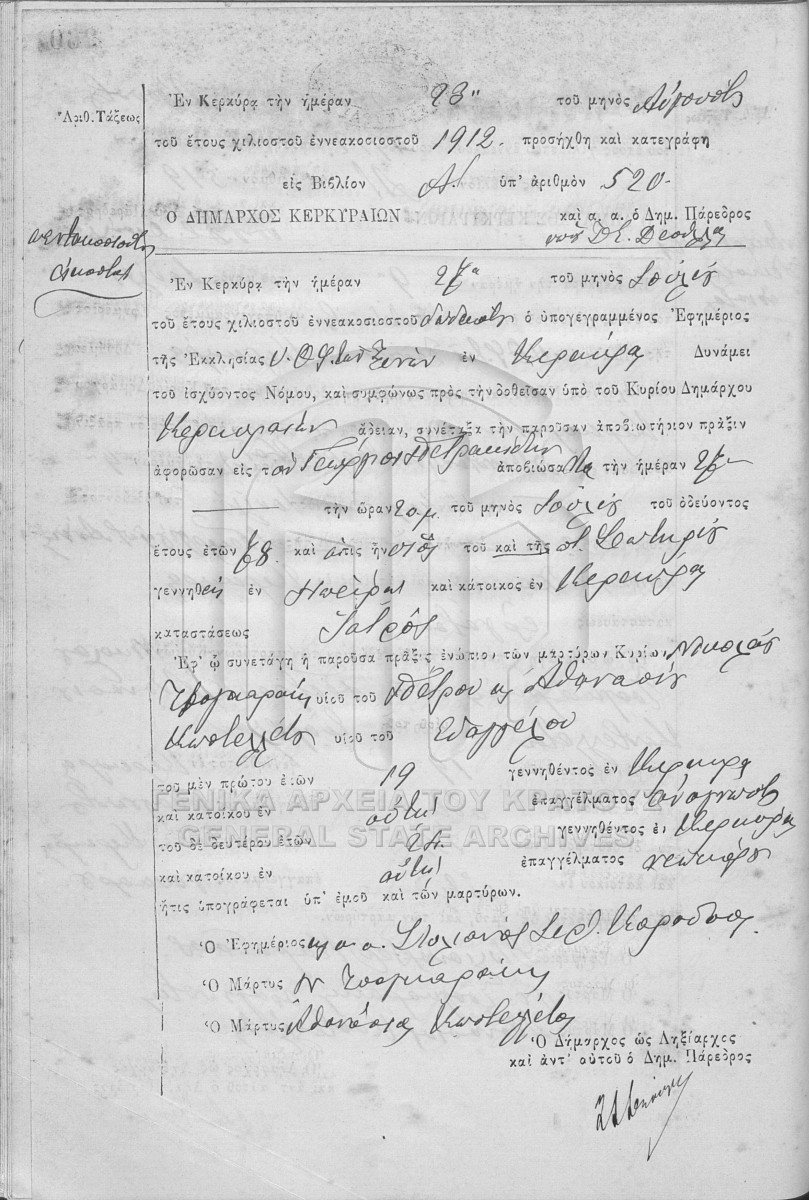 Ἐν Κερκύρᾳ τὴν ἡμέραν 23" τοῦ μηνὸς Αὐγούστου
Ἀριθ. Τάξεως
τοῦ ἔτους χιλιοστοῦ ἐννεακοσιοστοῦ 1912. προσήχθη καὶ κατεγράφη
εἰς Βιβλίον ὑπ' ἀριθμὸν 520
Ο ΔΗΜΑΡΧΟΣ ΚΕΡΚΥΡΑΙΩΝ καὶ α. α. ὁ Δημ. Πάρεδρος
πεντακοσιοστὴ
εἰκοστὴ
Ἐν Κερκύρᾳ τὴν ἡμέραν 27ᾳ τοῦ μηνὸς Ἰουλίου
τοῦ ἔτους χιλιοστοῦ ἐννεακοσιοστοῦ δωδεκάτου ὁ ὑπογεγραμμένος Ἐφημέριος
τῆς Ἐκκλησίας Υ. Θ. τῶν Ξένων ἐν Κερκύρᾳ Δυνάμει
τοῦ ἰσχύοντος Νόμου, καὶ συμφώνως πρὸς τὴν δοθεῖσαν ὑπὸ τοῦ Κυρίου Δημάρχου
Κερκυραίων ἄδειαν, συνέταξα τὴν παροῦσαν ἀποβιωτήριον πρᾶξιν
ἀφορῶσαν εἰς τὸν Γεώργιον ἀποβιώσαντα τὴν ἡμέραν 27
τὴν ὥραν τοῦ μηνὸς Ἰουλίου τοῦ ὁδεύοντος
ἔτους ἐτῶν 78 καὶ ὅστις ἦν υἱὸς τοῦ καὶ τῆς π. Σωτηρίου
γεννηθεὶς ἐν Ἠπείρῳ καὶ κάτοικος ἐν Κερκύρᾳ
καταστάσεως Ἰατρός
Ἐφ' ᾧ συνετάγη ἡ παροῦσα πρᾶξις ἐνώπιον τῶν μαρτύρων Κυρίων Νικολάου
υἱοῦ τοῦ Πέτρου κ Ἀθανασίου
υἱοῦ τοῦ Εὐαγγέλου
τοῦ μὲν πρώτου ἐτῶν 19 γεννηθέντος ἐν Κερκύρᾳ
ΓΕΝΙΚΑ ΑΡΧΕΙΑ ΤΟΥ ΚΡΑΤΟΥΣ
καὶ κατοίκου ἐν αὐτῇ ἐπαγγέλματος ἀναγνώστου
GENERAL STATE ARCHIVES
τοῦ δὲ δευτέρου ἐτῶν 24 γεννηθέντος ἐν Κερκύρᾳ
καὶ κατοίκου ἐν αὐτῇ ἐπαγγέλματος νεωκόρου
ἥτις ὑπογράφεται ὑπ' ἐμοῦ καὶ τῶν μαρτύρων.
Ὁ Ἐφημέριος κ α α. Στυλιανὸς
Ὁ Μάρτυς Ν
Ὁ Μάρτυς Ἀθανάσιος
Ὁ Δήμαρχος ὡς Ληξίαρχος
καὶ ἀντ' αὐτοῦ ὁ Δημ. Πάρεδρος